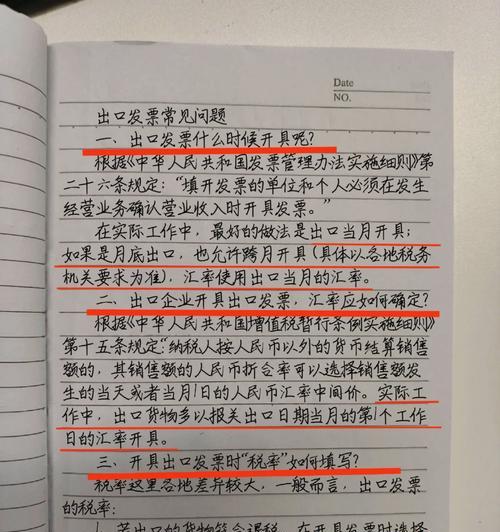 Date
NO.
出口发票常见问题
一、出口发票什么时候开具呢?
根据《中华人民共和国发票管理办法实施细则》第
二十六条规定:“填开发票的单位和个人必须在发生
经营业务确认营业收入时开具发票。”
在实际工作中,最好的做法是出口当月开具;
如果是月底出口,也允许跨月开具(具体以各地税务
机关要求为准),汇率使用出口当月的汇率。
二、出口企业开具出口发票,汇率应如何确定?
根据《中华人民共和国增值税暂行条例实施细则》
第十五条规定:“纳税人按人民币以外的货币结算销售
额的,其销售额的人民币折合率可以选择销售额发
生的当天或者当月1日的人民币汇率中间价。实际工
作中,出口货物多以报关出口日期当月的第1个工作
日的汇率开具。
三、开具出口发票时“税率”如何填写?
税率这里各地差异较大,一般而言,出口发票
的税率:
1、若出口的货物符合退税,在开具发票时选择